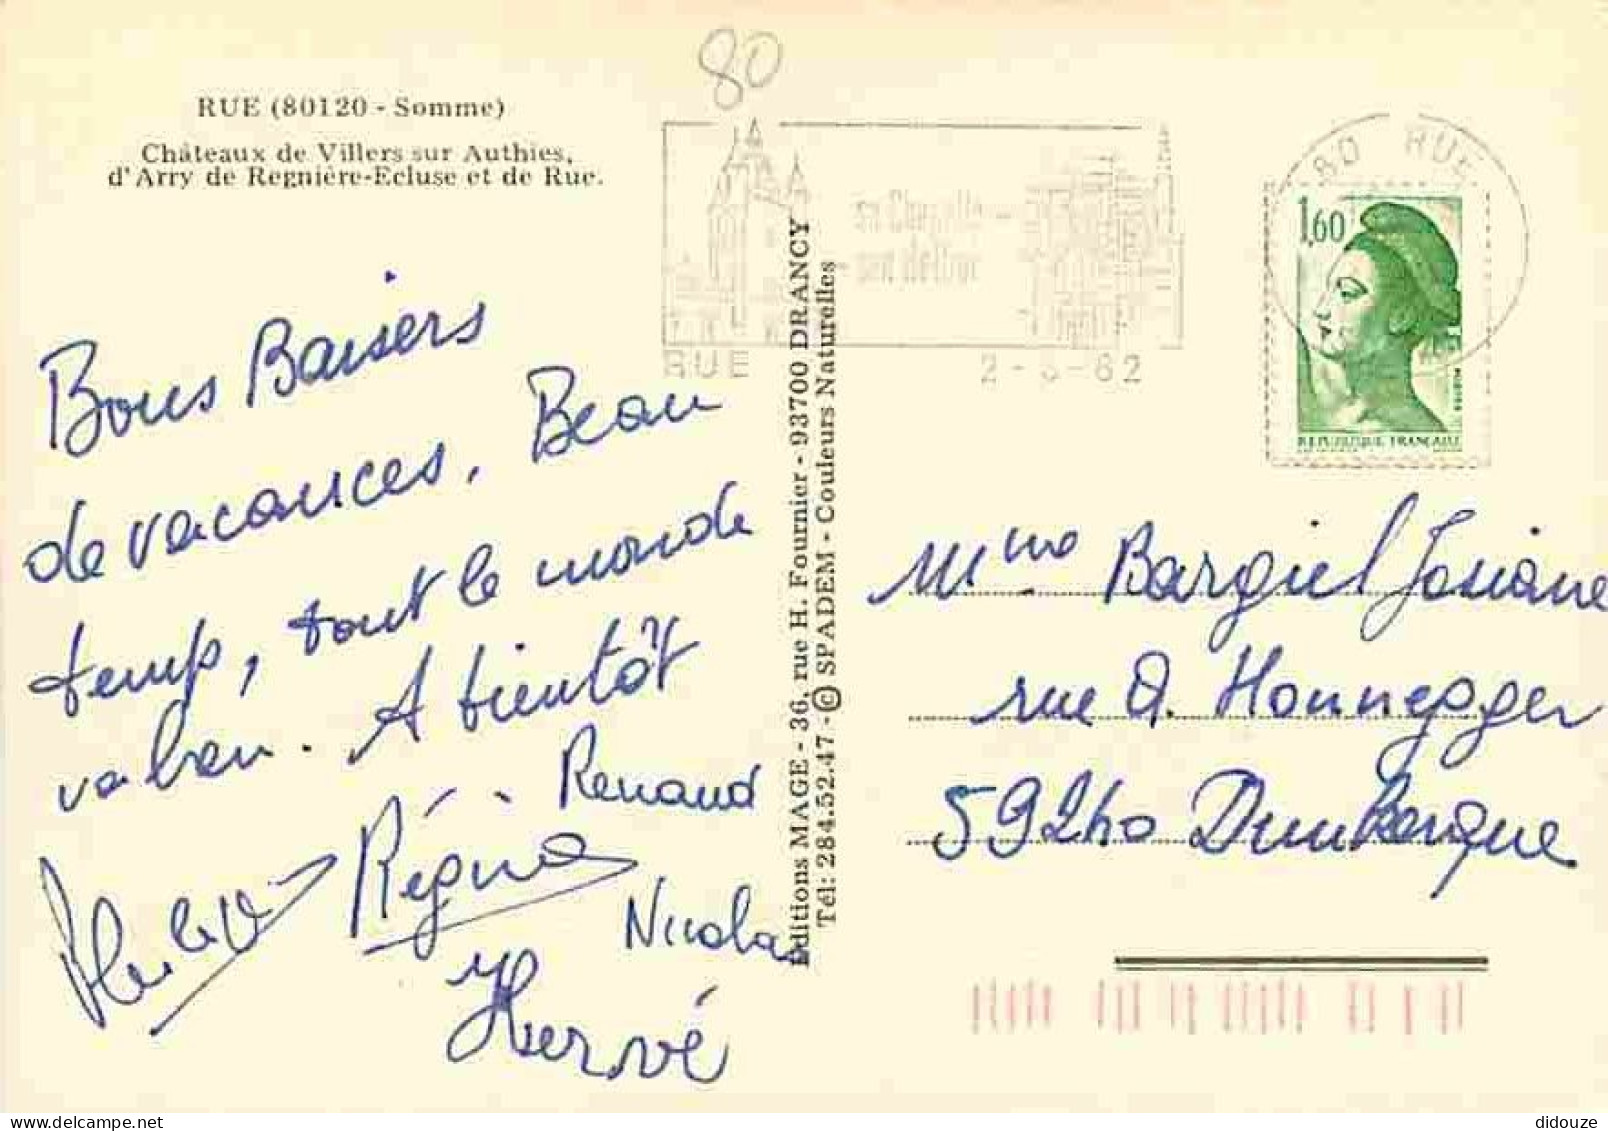 80
RUE (80120 - Somme)
Châteaux de Villers sur Authies,
d'Arry de Regnière-Ecluse et de Rue.
Bons Baisers
de vacances. Beau
temps, tout le monde
va bien. A bientôt
Renaud
Régine
Nicolas
Hervé
Editions MAGE - 36, rue H. Fournier - 93700 DRANCY
Tél: 284.52.47 - © SPADEM - Couleurs Naturelles
sa Chapelle
RUE
80 RUE
1,60
REPUBLIQUE FRANÇAISE
Mme Bargiel Josiane
rue A. Honnegger
59240 Dunkerque
didouze